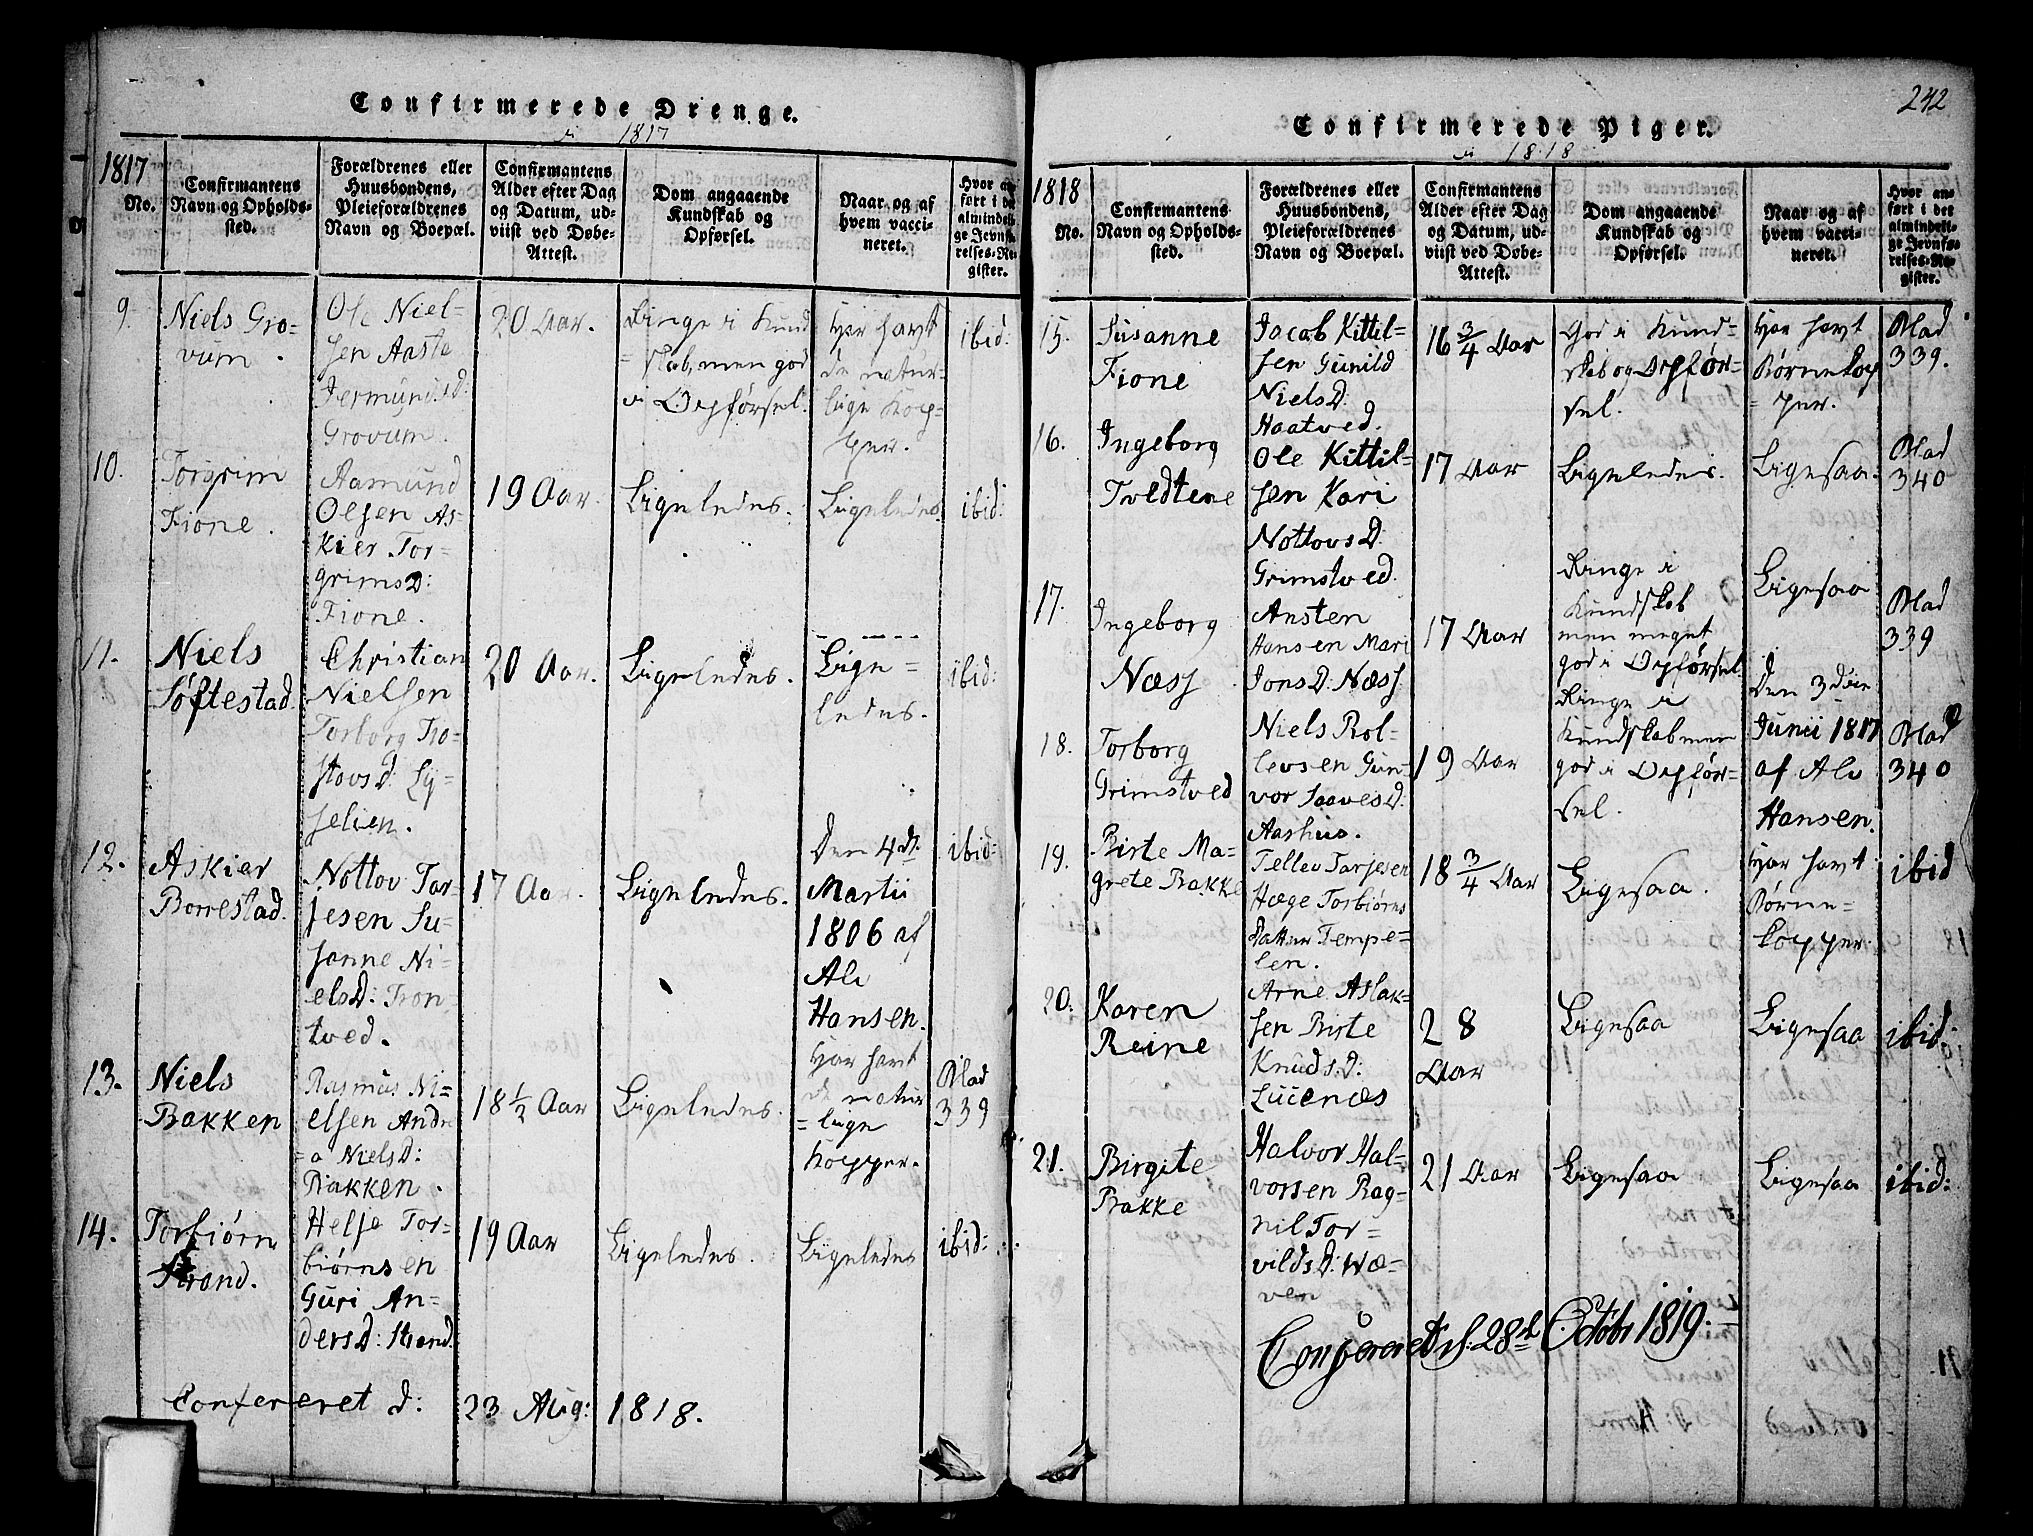 Confirmerede Drenge.
i 1817
1817
No.
Confirmantens
Navn og Opholds-
sted.
Forældrenes eller
Huusbondens,
Pleieforældrenes
Navn og Boepæl.
Confirmantens
Alder efter Dag
og Datum, ud-
viist ved Døbe-
Attest.
Dom angaaende
Kundskab og
Opførsel.
Naar og af
hvem vacci-
neret.
Hvor an-
ført i det
almindeli-
ge Jevnfø-
relses-Re-
gister.
9.
Niels Gro-
vum.
Ole Niel-
sen Aaste
Jermundsd:
Grovum.
20 Aar.
Ringe i Kund
= skab, men god
i Opførsel.
Har havt
de natur-
lige Kop-
per.
ibid:
10.
Torgrim
Fione.
Aamund
Olsen As-
kier Tor-
grimsD:
Fione.
19 Aar.
Ligeledes.
Ligeledes.
ibid:
11.
Niels
Søftestad.
Christian
Nielsen
Torborg Tro-
stovsd: Ly-
selien.
20 Aar.
Ligeledes.
Lige=
ledes.
ibid:
12.
Askier
Borrestad.
Nottov Tor-
jesen Su-
sanne Ni-
elsD: Tron-
tved.
17 Aar.
Ligeledes.
Den 4de
Martii
1806 af
Alv
Hansen.
ibid:
13.
Niels
Bakken
Rasmus Ni=
elsen Andre
= a NielsD:
Bakken.
18 1/2 Aar
Ligeledes.
Har havt
de natur
= lige
Kopper.
Blad
339
14.
Torbiørn
Strand.
Helje Tor-
biørnsen
Guri An-
dersD: Strand.
19 Aar
Ligeledes.
Ligeledes
ibid:
Confereret d: 23 Aug: 1818.
242
Confirmerede Piger.
i 1818
1818
No.
Confirmantens
Navn og Opholds-
sted.
Forældrenes eller
Huusbondens,
Pleieforældrenes
Navn og Boepæl.
Confirmantens
Alder efter Dag
og Datum, ud-
viist ved Døbe-
Attest.
Dom angaaende
Kundskab og
Opførsel.
Naar og af
hvem vacci-
neret.
Hvor an-
ført i det
almindeli-
ge Jevnfø-
relses-Re-
gister.
15.
Susanne
Fione
Jacob Kittil-
sen Gunild
NielsD:
Haatved.
16 3/4 Aar
God i Kund-
skab og Opfør-
sel.
Har havt
Børnekop
= per.
Blad
339.
16.
Ingeborg
Tvedtene
Ole Kittil=
sen Kari
NottovsD:
Grimstved.
17 Aar
Ligeledes.
Ligesaa.
Blad
340
17.
Ingeborg
Næss
Ansten
Hansen Mari
JonsD: Næss.
17 Aar
Ringe i
Kundskab
men meget
god i Opførsel
Ligesaa
Blad
339
18.
Torborg
Grimstved
Niels Rol-
levsen Gun-
vor SaavesD:
Aashuo.
19 Aar
Ringe i
Kundskab men
god i Opfør-
sel.
Den 3die
Junii 1817
af Alv
Hansen.
Blad
340
19.
Birte Ma-
grete Bakke
Tellev Tarjesen
Hæge Torbiørns
Datter Tempe=
len.
18 3/4 Aar
Ligesaa.
Har havt
Børne=
kopper.
ibid
20.
Karen
Reine
Arne Aslak=
sen Birte
KnudsD:
Lucenæs
28
Aar
Ligesaa
Ligesaa
ibid.
21.
Birgite
Bakke
Halvor Hal=
vorsen Rag=
nil Tor=
vildsD: Wæ-
ven
21 Aar
Ligesaa
Ligesaa
ibid:
Confereret d. 28d October 1819.